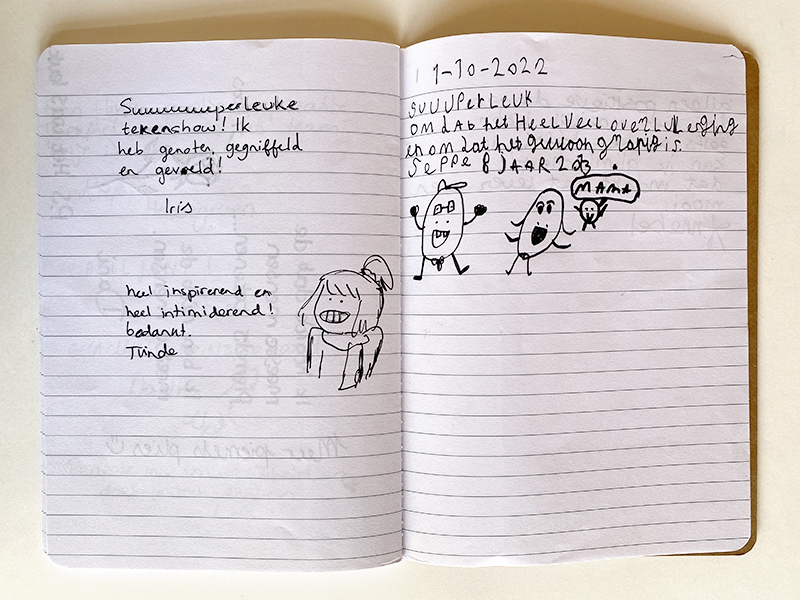 Suuuuuuuperleuke
tekenshow! Ik
heb genoten, gegniffeld
en gevoeld!
Iris
heel inspirerend en
heel intimiderend!
bedankt.
Tünde
1-10-2022
SUUUPerLeUK
OMDAt het HeeL VeeL over
en omdat het gewoon grapig is.
SePPe 8 JAAR
MAMA